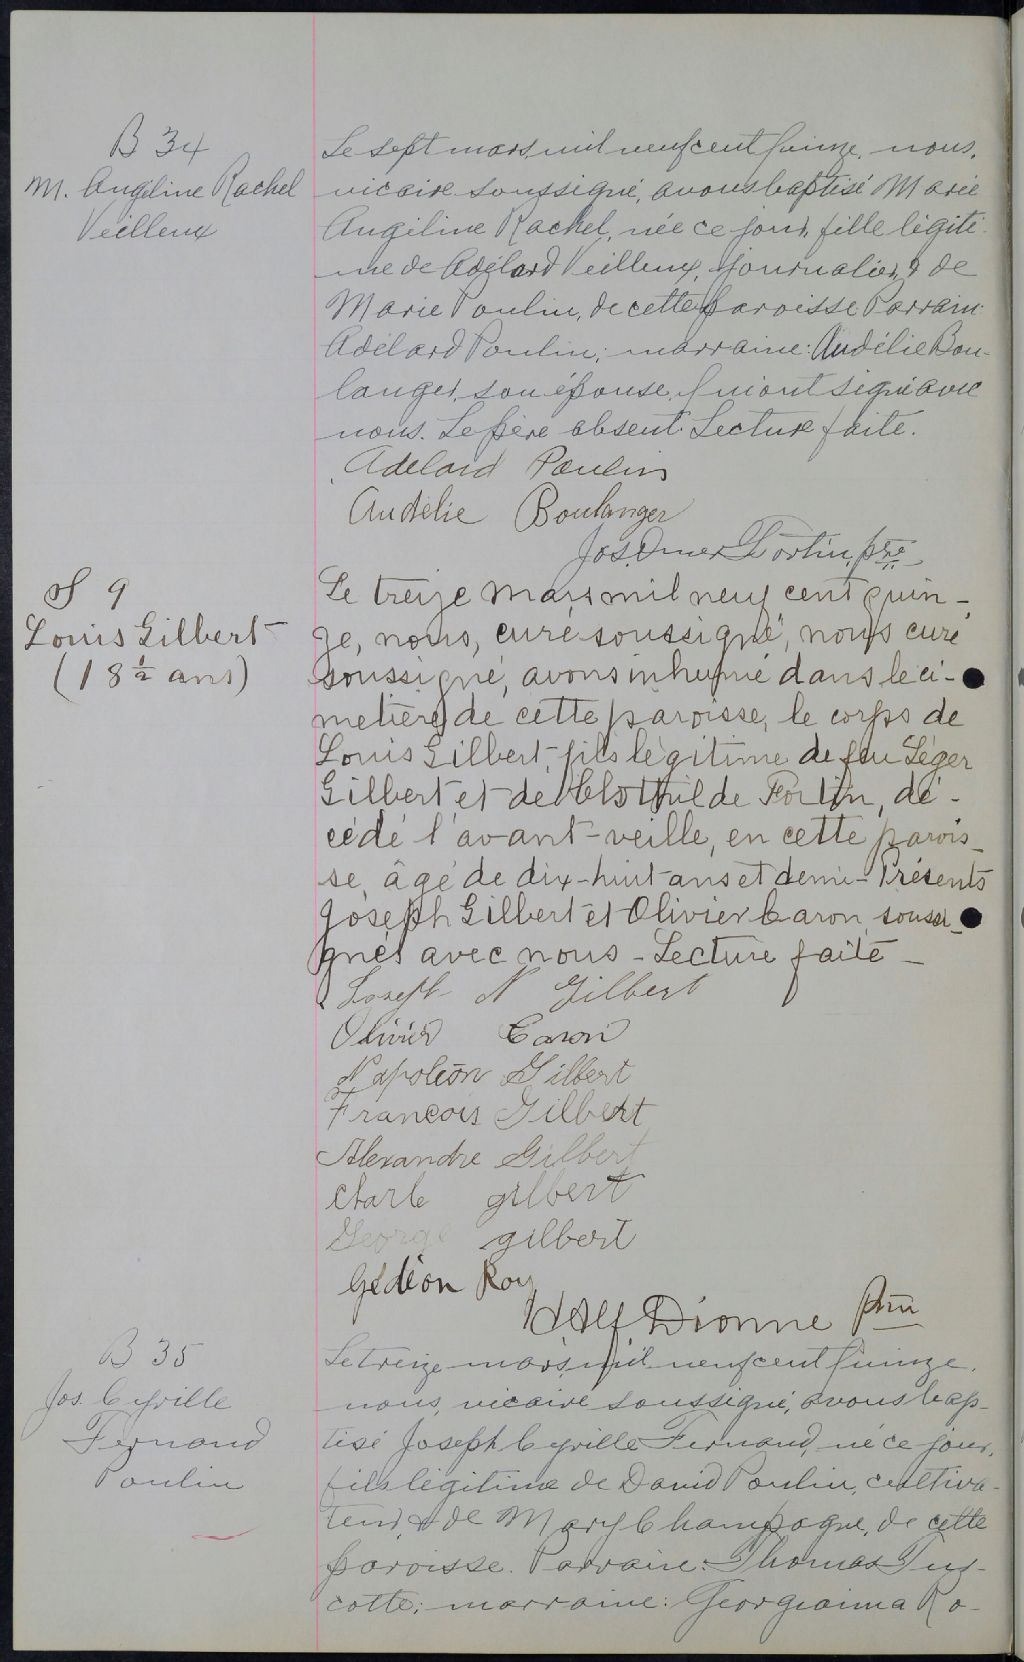 B 34
M. Angéline Rachel
Veilleux
Le sept mars mil neuf cent quinze, nous,
vicaire soussigné, avons baptisé Marie
Angéline Rachel, née ce jour, fille légiti-
me de Adélard Veilleux, journalier, & de
Marie Poulin, de cette paroisse. Parrain:
Adélard Poulin; marraine: Audélie Bou-
langer, son épouse, qui ont signé avec
nous. Le père absent. Lecture faite.
Adelard Poulin
Audelie Boulanger
Jos. Omer Fortin, ptre
S 9
Louis Gilbert
(18 ½ ans)
Le treize mars mil neuf cent quin-
ze, nous, curé soussigné, nous curé
soussigné, avons inhumé dans le ci-
metière de cette paroisse, le corps de
Louis Gilbert, fils légitime de feu Léger
Gilbert et de Clothilde Fortin, dé-
cédé l'avant-veille, en cette parois-
se, âgé de dix-huit ans et demi - Présents
Joseph Gilbert et Olivier Caron, soussi-
gnés avec nous - Lecture faite -
Joseph N Gilbert
Olivier Caron
Napoléon Gilbert
Francois Gilbert
Alexandre Gilbert
Charle gilbert
George gilbert
Gédéon Roy
Alf. Dionne
B 35
Jos. Cyrille
Fernand
Poulin
Le treize mars, mil neuf cent quinze,
nous, vicaire soussigné, avons bap-
tisé Joseph Cyrille Fernand, né ce jour,
fils légitime de David Poulin, cultiva-
teur, & de Mary Champagne, de cette
paroisse. Parrain: Thomas Tur-
cotte; marraine: Georgianna Ro-